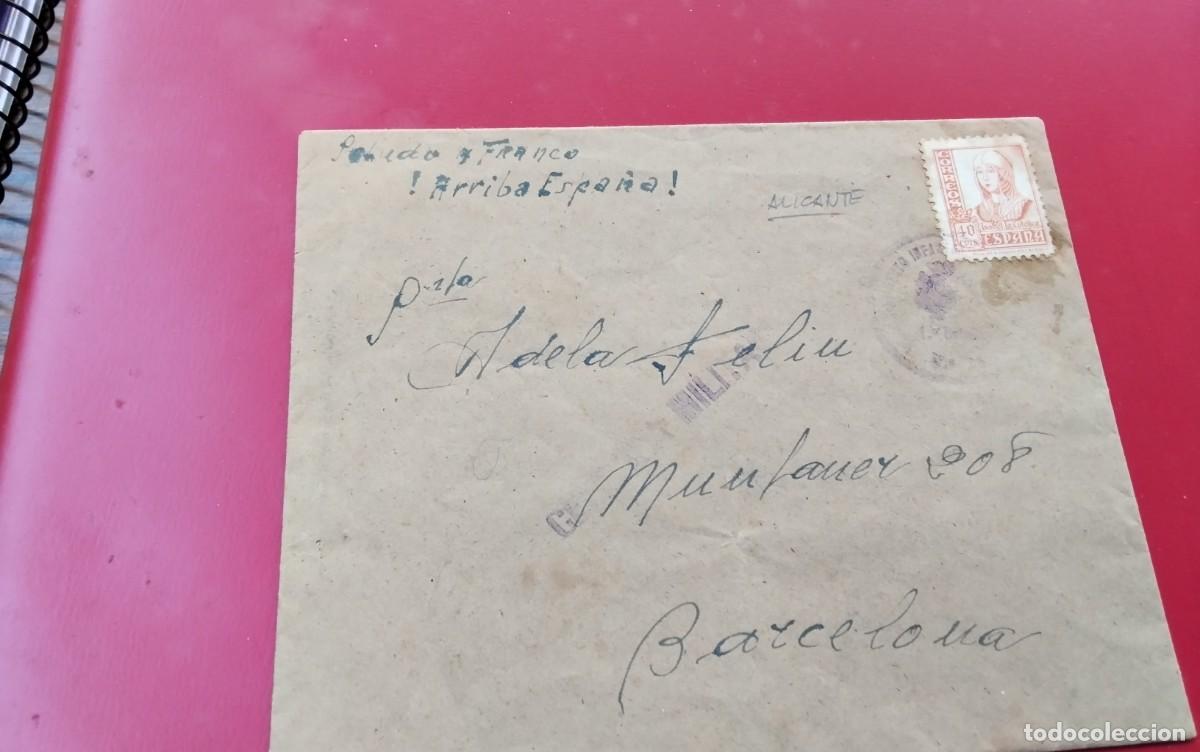 Saludo a Franco
! Arriba España !
ALICANTE
CORREOS
40
CTS
ISABEL LA CATOLICA
ESPAÑA
Srta
Adela Feliu
MILIT
Muntaner 208
C
Barcelona
todocoleccion